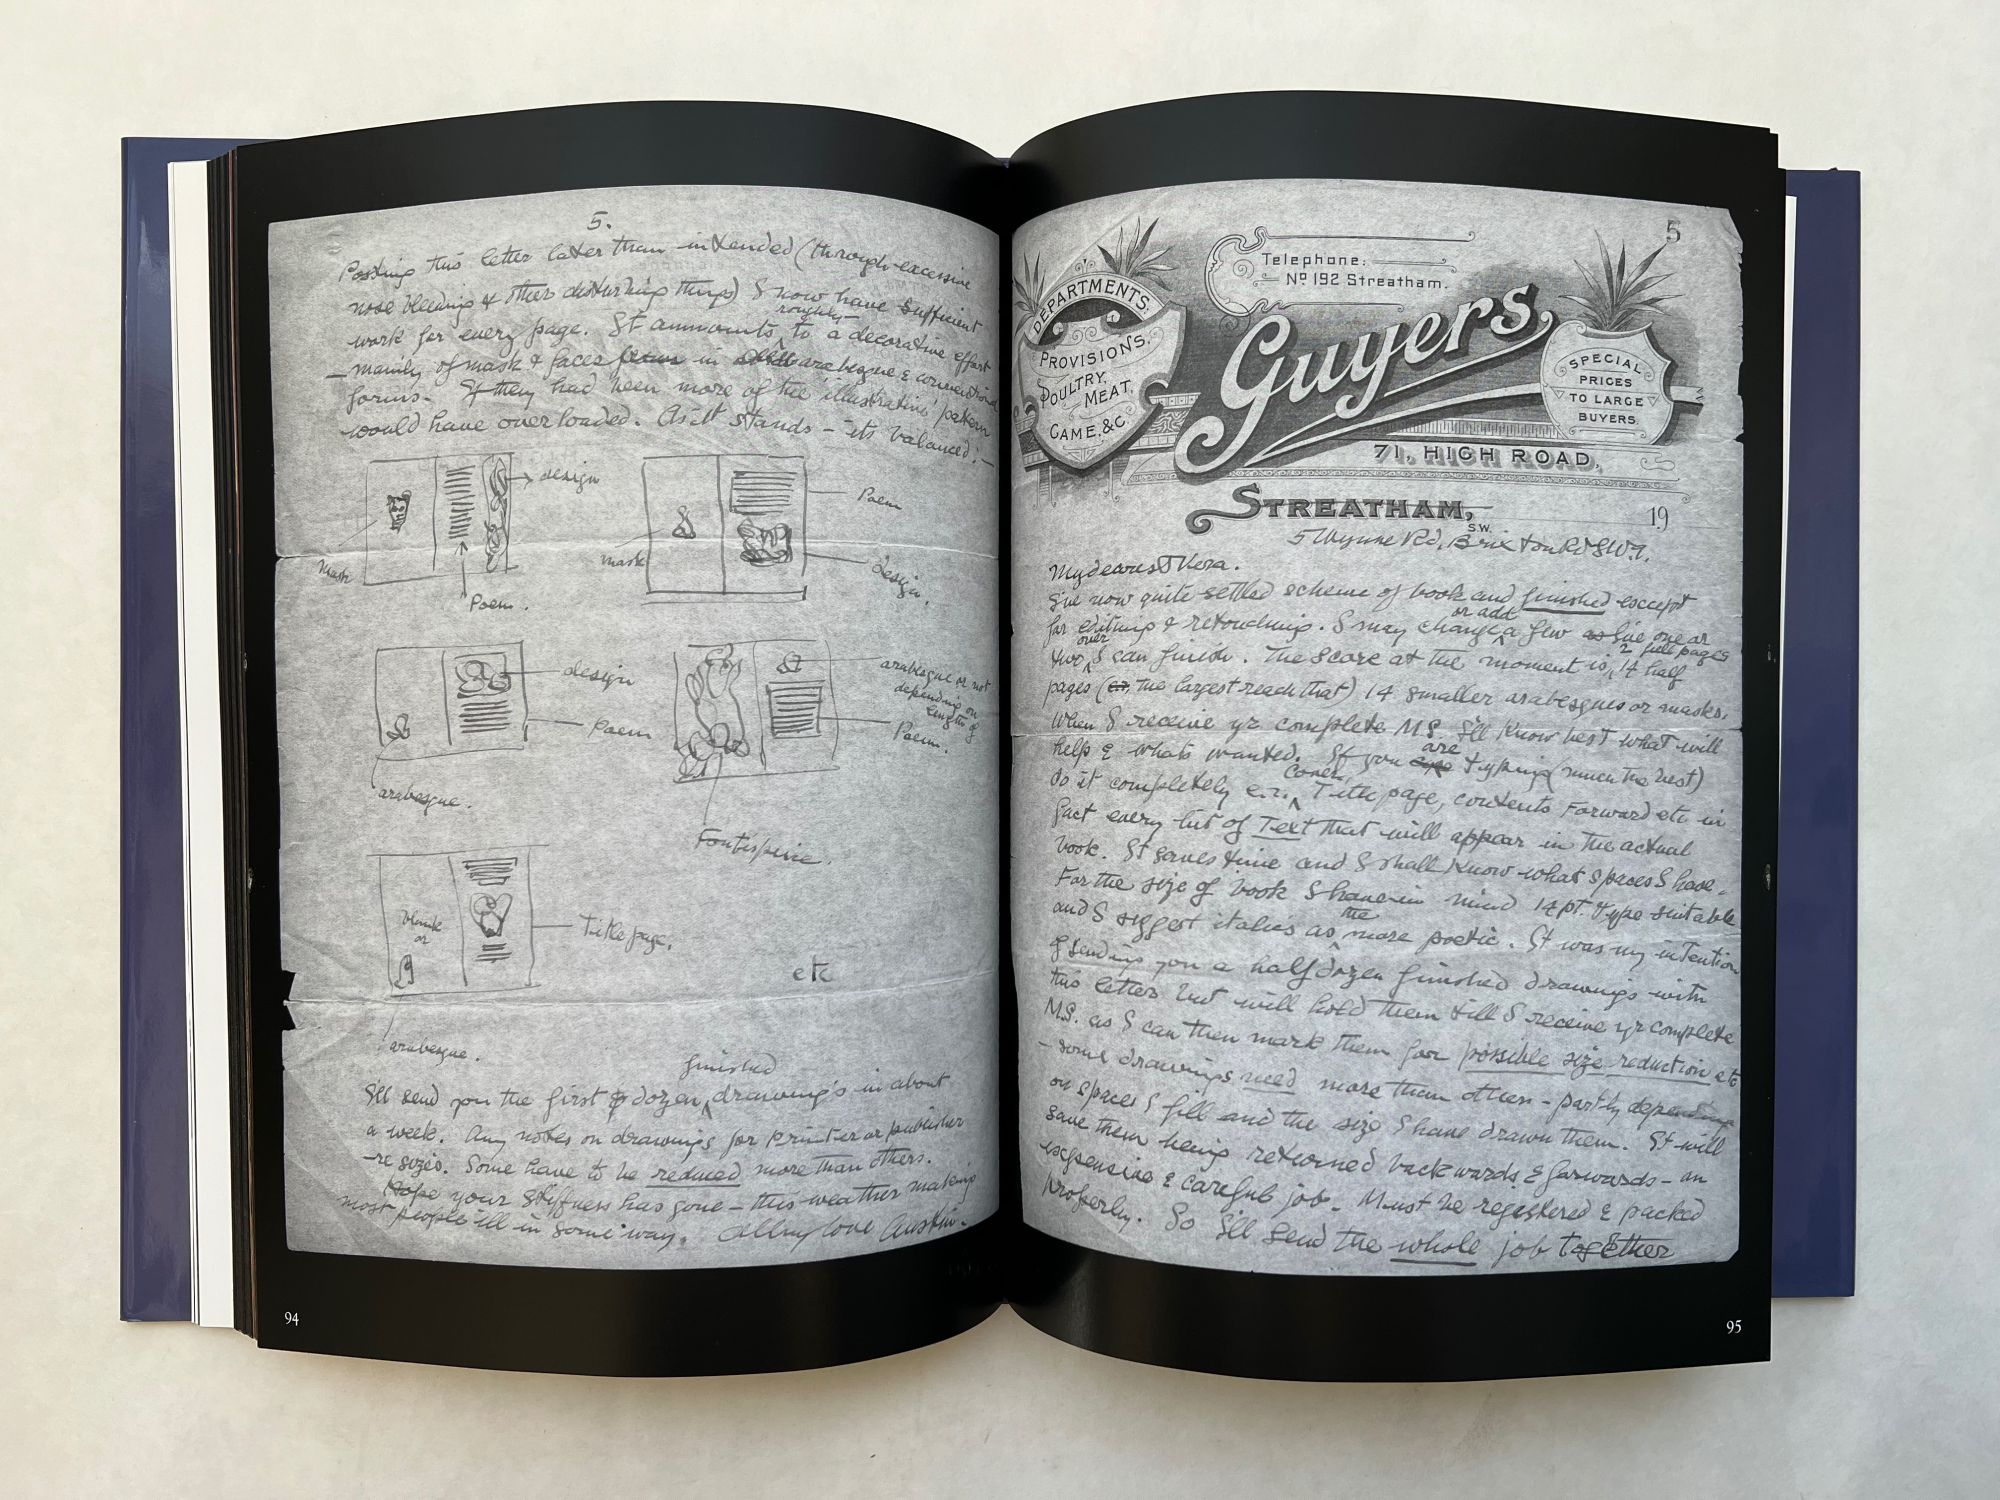 5.
Posting this letter later than intended (through excessive
nose bleeding & other disturbing things) I now have sufficient
roughly
work for every page. It ammounts to a decorative effort
– mainly of mask & faces in arabesque & conventional
forms. If they had been more of the 'illustrative' pattern
would have overloaded. As it stands – its balanced: –
design
mask
Poem.
Poem
mask
design.
design
Poem
arabesque.
arabesque or not
depending on
length of
Poem.
Fontispiece.
blank
or
Title page.
arabesque.
etc
finished
I'll send you the first dozen drawings in about
a week. Any notes on drawings for printer or publisher
– re sizes. Some have to be reduced more than others.
Hope your stiffness has gone – this weather making
most people ill in some way. All my love Austin.
94
5
Telephone:
No 192 Streatham.
DEPARTMENTS.
PROVISIONS,
POULTRY,
MEAT,
GAME, &C.
Guyers,
SPECIAL
PRICES
TO LARGE
BUYERS.
71, HIGH ROAD,
STREATHAM,
S.W.
19
5 Wynne Rd, Brixton Rd SW9.
My dearest Vera.
I've now quite settled scheme of book and finished except
or add
for editing & retouching. I may change a few as I've one or
over 2 full pages
two I can finish. The score at the moment is, 14 half
pages (the largest reach that) 14 smaller arabesques or masks.
When I receive yr complete M.S. I'll know best what will
are
help & whats wanted. If you typing (much the best)
Cover,
do it completely e.x. Title page, contents Forward etc. in
fact every bit of Text that will appear in the actual
book. It saves time and I shall know what spaces I have.
For the size of book I have in mind 14 pt. type suitable
the
and I suggest italics as more poetic. It was my intention
of sending you a half dozen finished drawings with
this letter but will hold them till I receive yr complete
M.S. as I can then mark them for possible size reduction etc
– some drawings need more than others – partly depending
on spaces I fill and the size I have drawn them. It will
save them being returned backwards & forwards – an
expensive & careful job. Must be registered & packed
properly. So I'll send the whole job together
95